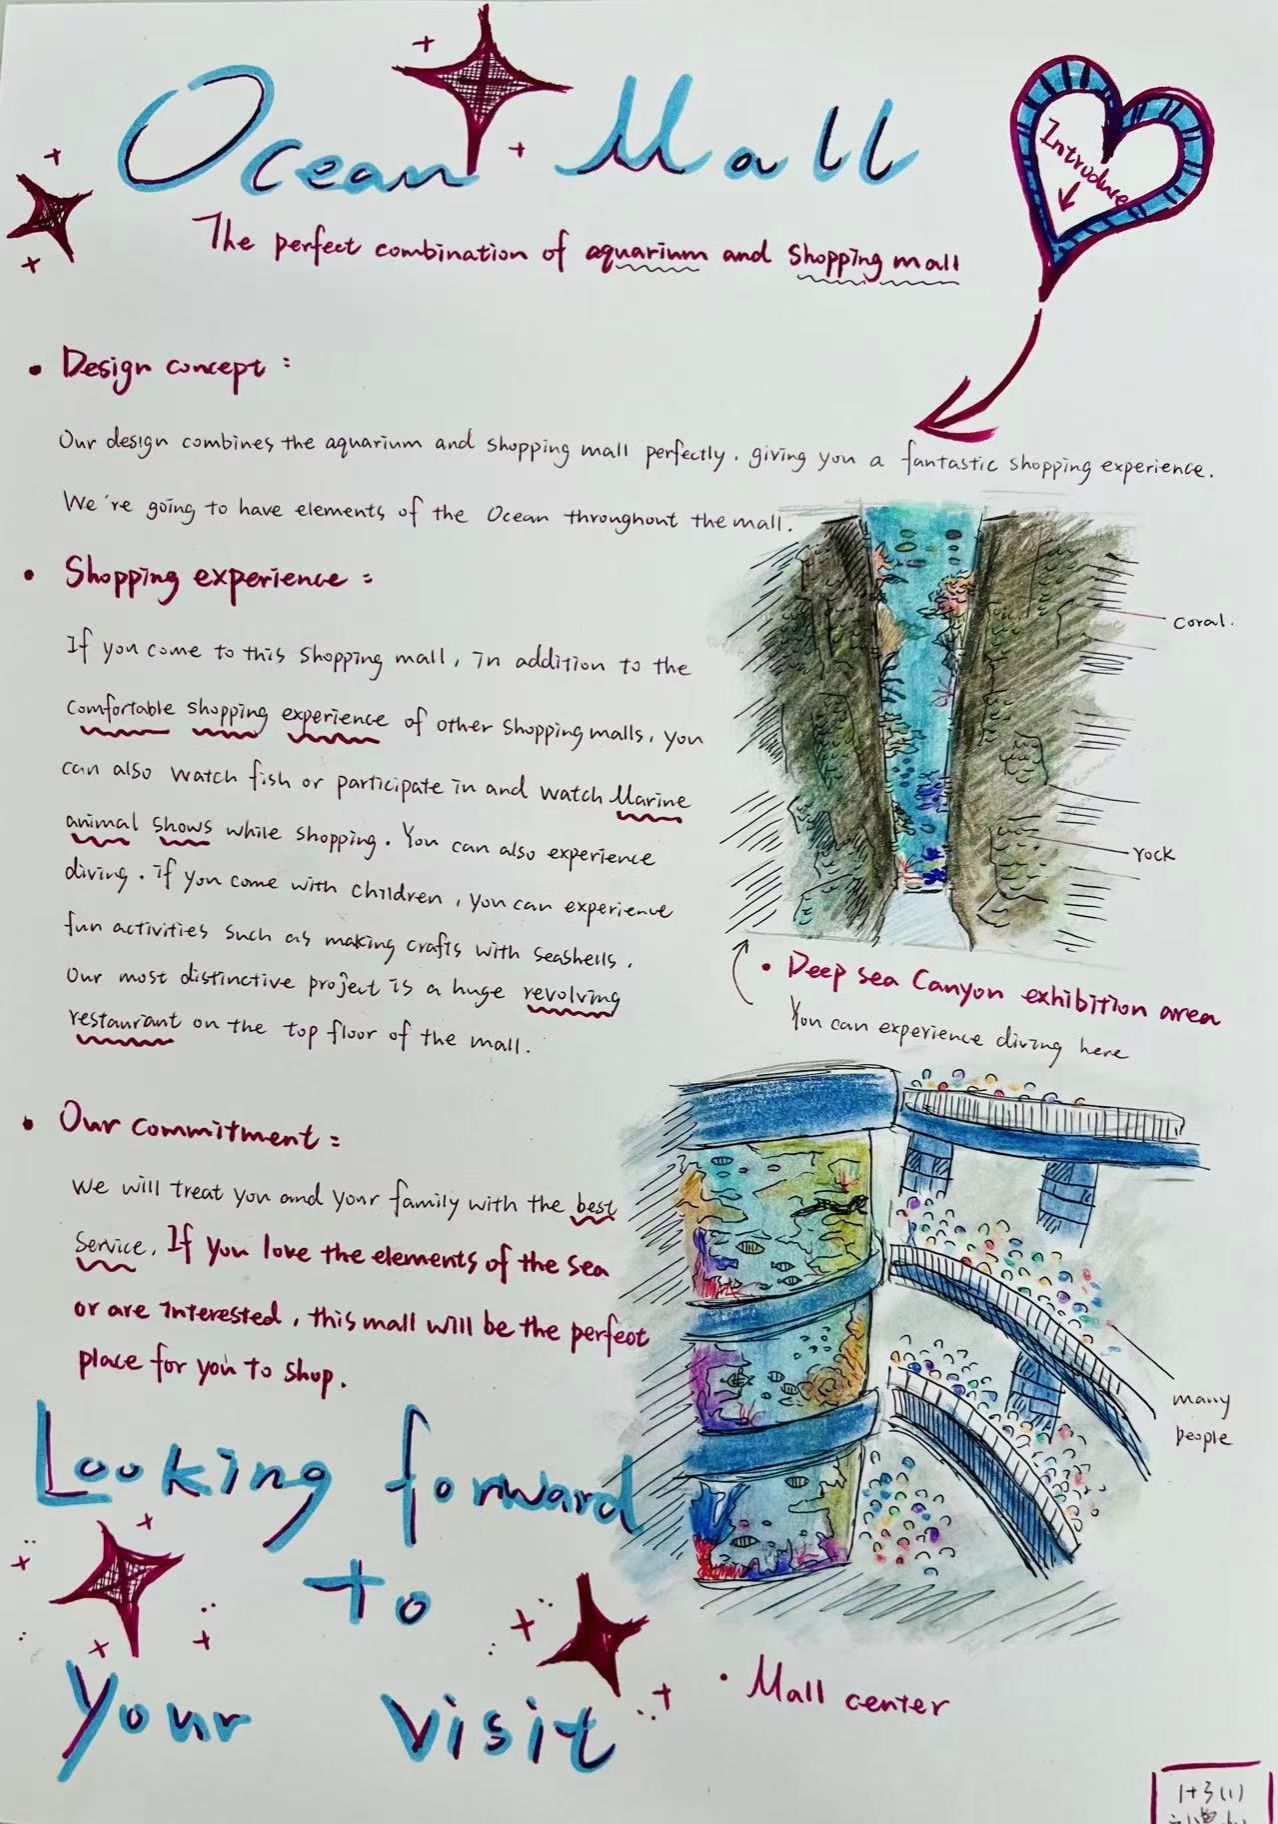 Ocean Mall
Introduce
The perfect combination of aquarium and shopping mall
• Design concept :
Our design combines the aquarium and shopping mall perfectly, giving you a fantastic shopping experience.
We're going to have elements of the Ocean throughout the mall.
• Shopping experience :
If you come to this shopping mall, in addition to the
comfortable shopping experience of other shopping malls, you
can also watch fish or participate in and watch Marine
animal shows while shopping. You can also experience
diving. if you come with children, you can experience
fun activities such as making crafts with seashells.
Our most distinctive project is a huge revolving
restaurant on the top floor of the mall.
coral.
rock
• Deep sea Canyon exhibition area
You can experience diving here
• Our commitment :
We will treat you and your family with the best
service. If you love the elements of the sea
or are interested, this mall will be the perfect
place for you to shop.
many
people
Looking forward
to
Your visit
• Mall center
1+3(1)